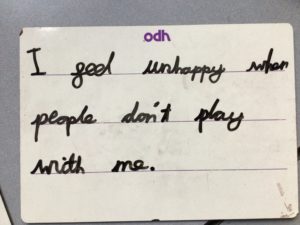 odh
I geel unhappy when
people don't play
with me.